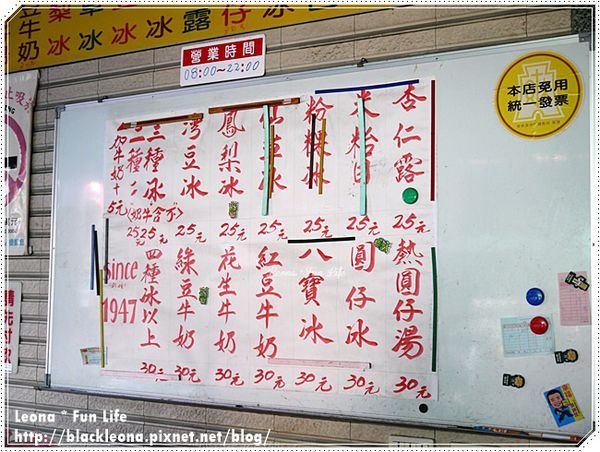 豆牛奶
梨冰
冰
冰
露
仔冰
冰
營業時間
08:00～22:00
本店免用
統一發票
杏仁露
25元
25元
粉粿冰
25元
25元
鳳梨冰
25元
灣豆冰
25元
三種冰
25元
25元
加牛奶十5元
熱圓仔湯
30元
圓仔冰
30元
八寶冰
30元
紅豆牛奶
30元
花生牛奶
30元
綠豆牛奶
30元
四種冰以上
30元
since
1947
Leona * Fun Life
http://blackleona.pixnet.net/blog/